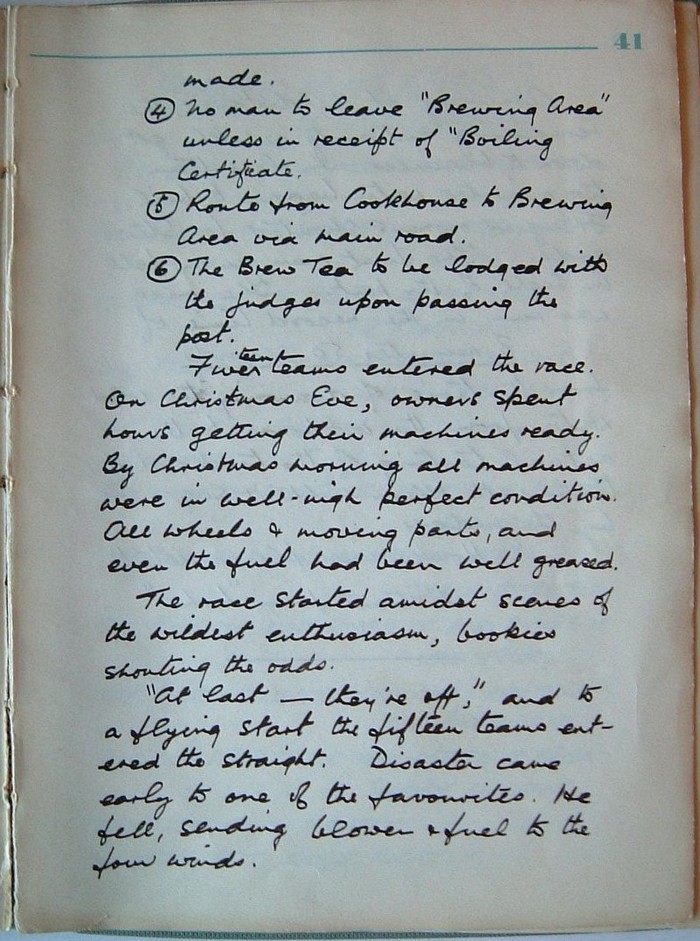 41
made.
④ No man to leave "Brewing Area"
unless in receipt of "Boiling
Certificate.
⑤ Route from Cookhouse to Brewing
Area via main road.
⑥ The Brew Tea to be lodged with
the judges upon passing the
post.
teen
teams entered the race.
On Christmas Eve, owners spent
hours getting their machines ready.
By Christmas morning all machines
were in well-nigh perfect condition.
All wheels & moving parts, and
even the fuel had been well greased.
The race started amidst scenes of
the wildest enthusiasm, bookies
shouting the odds.
"At last — they're off," and to
a flying start the fifteen teams ent-
ered the straight. Disaster came
early to one of the favourites. He
fell, sending blower & fuel to the
four winds.